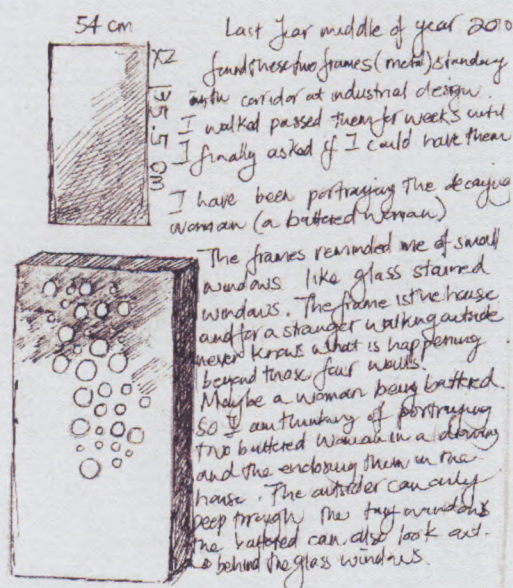 54 cm
X2
135.5 cm
Last Year middle of year 2010
found these two frames (metal) standing
in the corridor at industrial design.
I walked passed them for weeks until
I finally asked if I could have them
I have been portraying the decaying
woman (a battered woman)
The frames reminded me of small
windows like glass stained
windows. The frame is the house
and for a stranger walking outside
never knows what is happening
beyond those four walls.
Maybe a woman being battered
So I am thinking of portraying
two battered woman in a drawing
and the enclosing them in the
house. The outsider can only
peep through the tiny windows
the battered can also look out.
behind the glass windows.